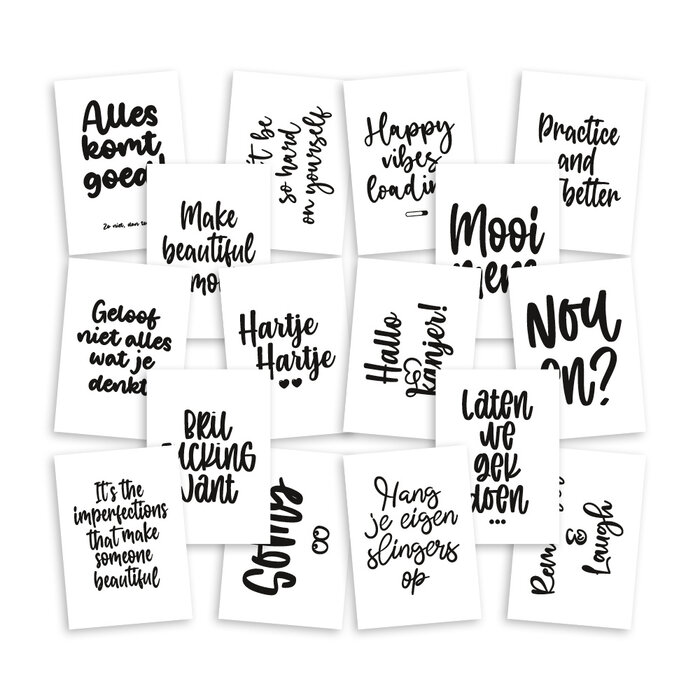 Alles
komt
goed!
Zo niet, dan
be
so hard
on yourself
Happy
vibes
loading
Practice
and
better
Make
beautiful
Mooi
Geloof
niet alles
wat je
denkt
Hartje
Hartje
Hallo
kanjer!
Nou
en?
BRIL
Laten
we
gek
doen
...
It's the
imperfections
that make
someone
beautiful
Soms
Hang
je eigen
slingers
op
&
Laugh